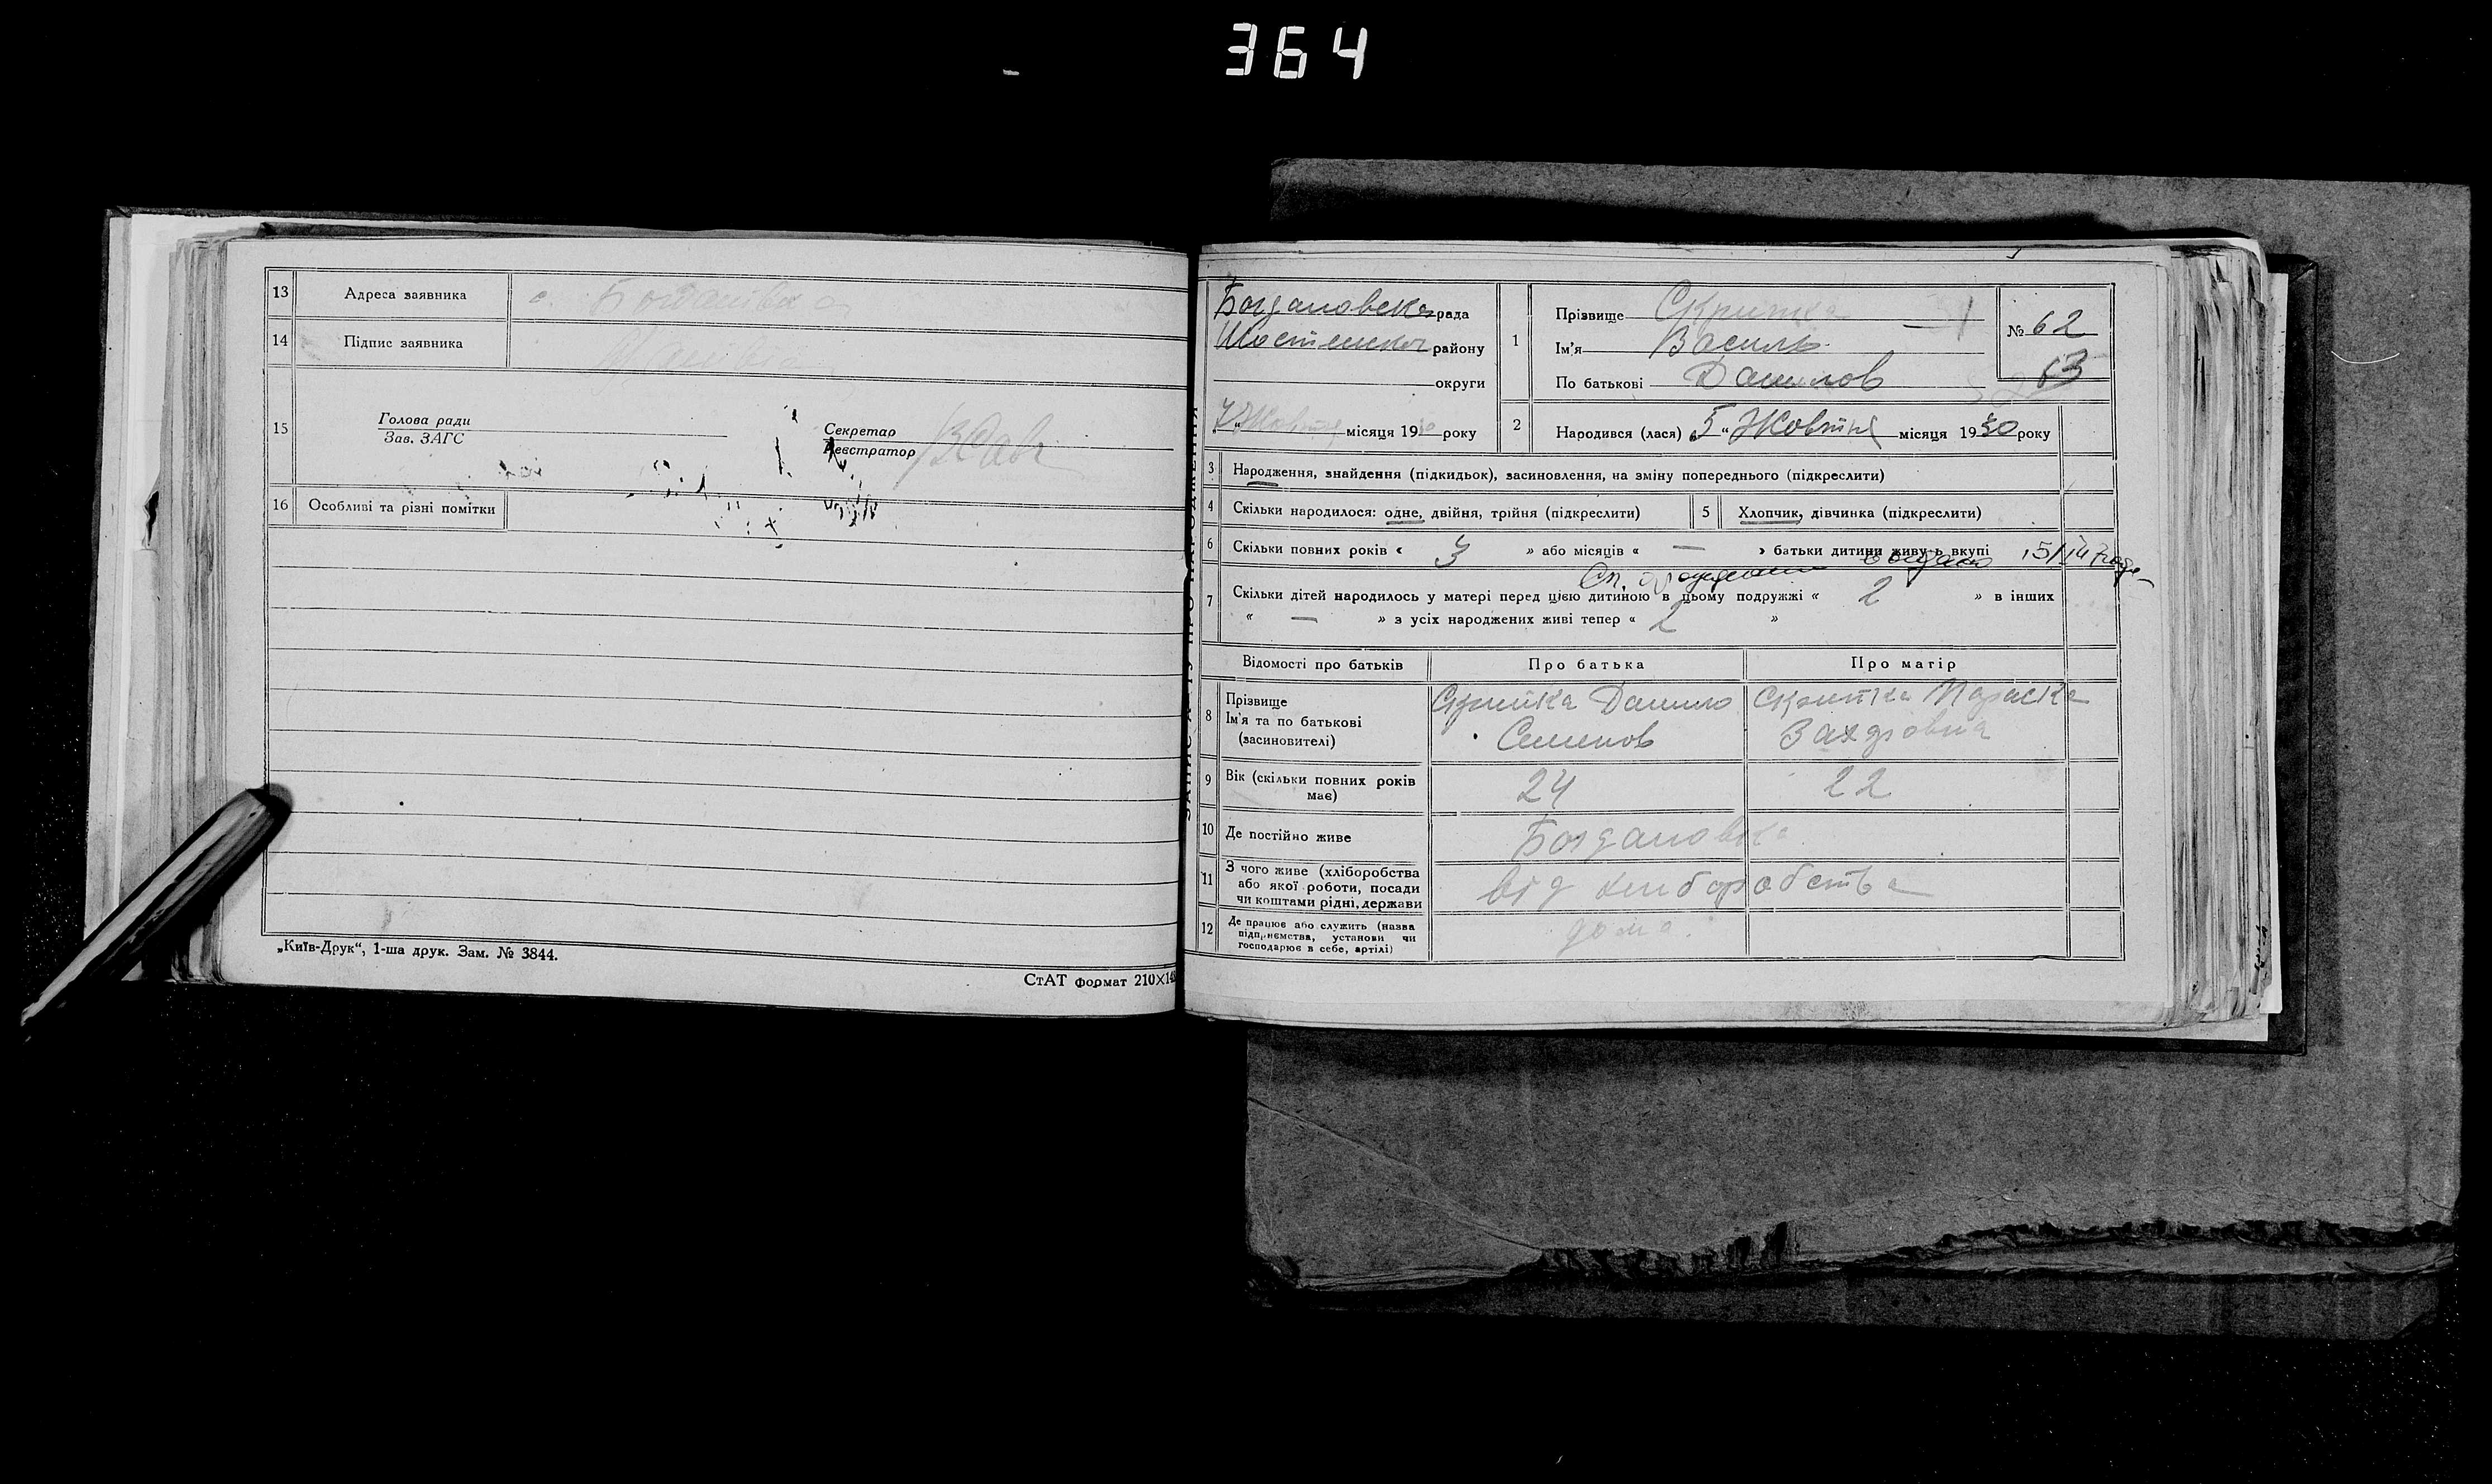 364
13 Адреса заявника с. Богданівка
14 Підпис заявника
15 Голова ради
Зав. ЗАГС
Секретар
Реєстратор
16 Особливі та різні помітки
„Київ-Друк“, 1-ша друк. Зам. № 3844.
СтАТ формат 210×14
Богдановська рада
Шостенског району
округи
„7“ Жовтня місяця 1930 року
1 Прізвище Скрипка
Ім'я Василь
По батькові Данилов
№ 62
63
2 Народився (лася) „5“ Жовтня місяця 1930 року
3 Народження, знайдення (підкидьок), засиновлення, на зміну попереднього (підкреслити)
4 Скільки народилося: одне, двійня, трійня (підкреслити)
5 Хлопчик, дівчинка (підкреслити)
6 Скільки повних років « 3 » або місяців « — » батьки дитини живуть вкупі
7 Скільки дітей народилось у матері перед цією дитиною в цьому подружжі « 2 » в інших
« — » з усіх народжених живі тепер « 2 »
Відомості про батьків
Про батька
Про матір
8 Прізвище
Ім'я та по батькові
(засиновителі)
Скрипка Данило
Семенов
Скрипка Параска
Захаровна
9 Вік (скільки повних років
має)
24
22
10 Де постійно живе Богдановка
11 З чого живе (хліборобства
або якої роботи, посади
чи коштами рідні, держави
від хлиборобства
12 Де працює або служить (назва
підприємства, установи чи
господарює в себе, артілі)
дома.